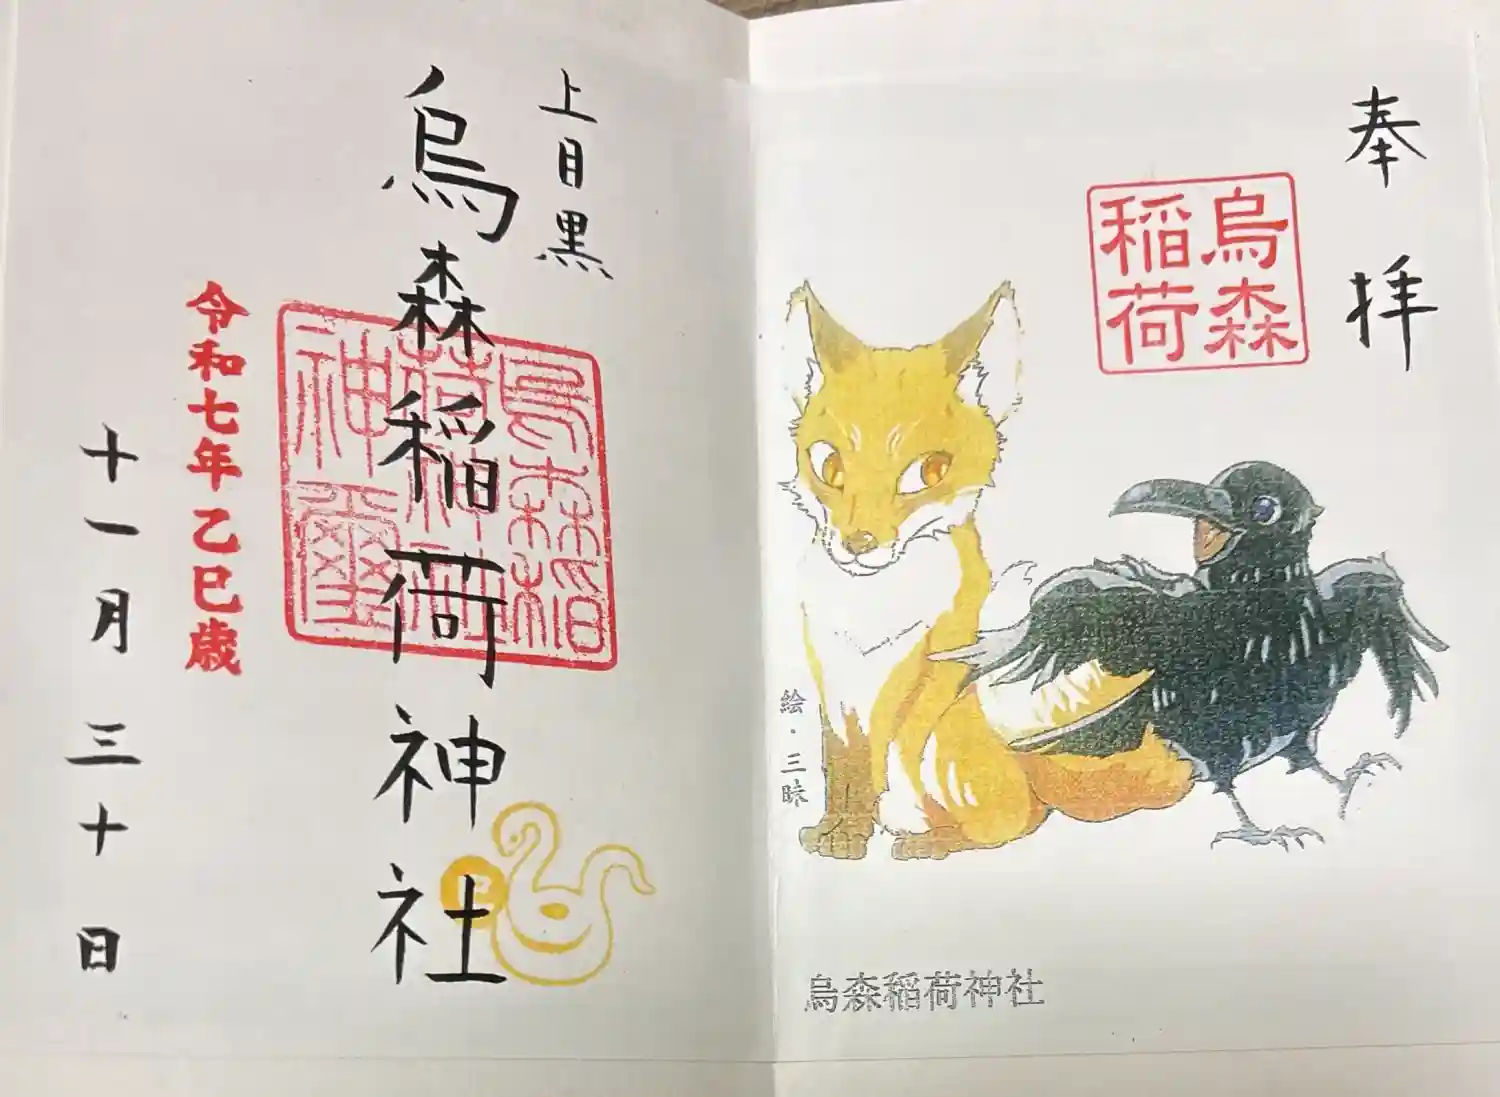 奉拝
烏森
稲荷
絵・三昧
烏森稲荷神社
上目黒
烏森稲荷神社
烏森稲
荷神社
神璽
令和七年乙巳歳
十一月三十日
巳